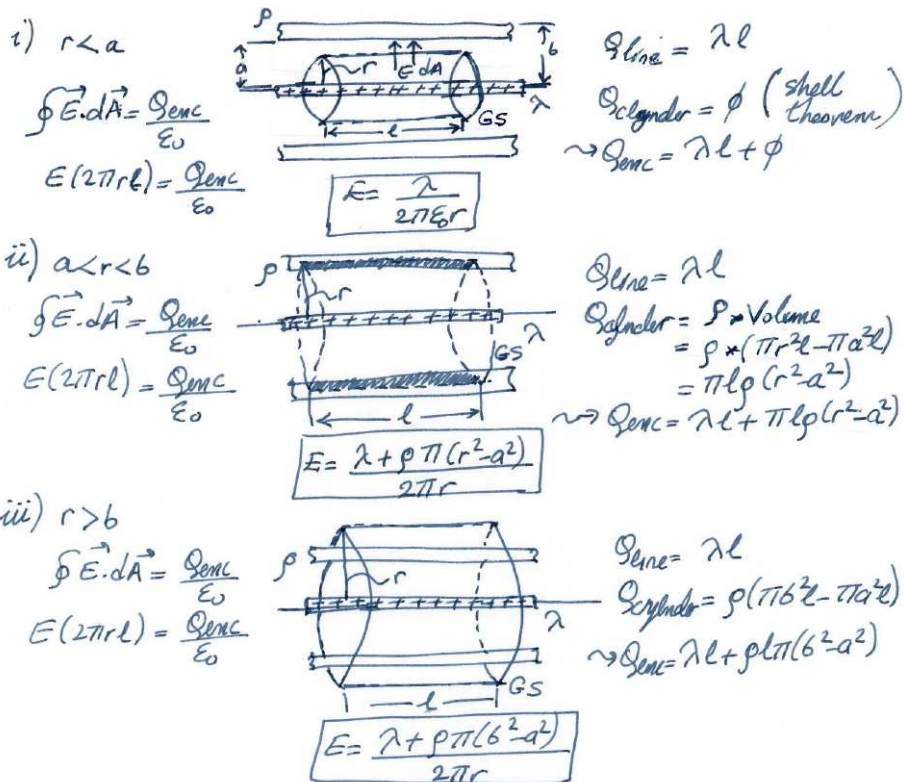 i) r<a
∮E⃗.dA⃗ = Qenc/ε₀
E(2πrl) = Qenc/ε₀
ρ
a
r
E dA
b
λ
l
GS
E = λ/2πε₀r
Qline = λl
Qclynder = ϕ (shell theorem)
⇝ Qenc = λl + ϕ
ii) a<r<b
∮E⃗.dA⃗ = Qenc/ε₀
E(2πrl) = Qenc/ε₀
ρ
r
λ
GS
l
E = λ + ρπ(r²-a²)/2πr
Qline = λl
Qcylnder = ρ * Volume
= ρ * (πr²l - πa²l)
= πlρ(r²-a²)
⇝ Qenc = λl + πlρ(r²-a²)
iii) r>b
∮E⃗.dA⃗ = Qenc/ε₀
E(2πrl) = Qenc/ε₀
ρ
r
λ
l
GS
E = λ + ρπ(b²-a²)/2πr
Qline = λl
Qcrylnder = ρ(πb²l - πa²l)
⇝ Qenc = λl + ρlπ(b²-a²)